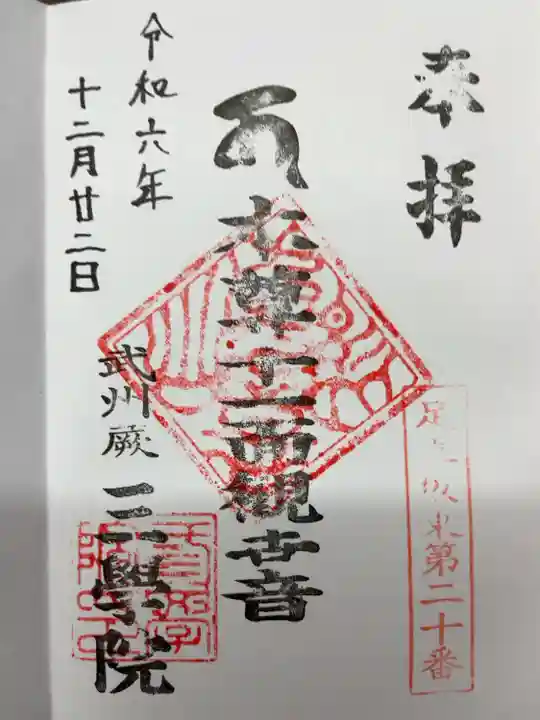 奉拝
足立坂東第二十番
本尊十一面観世音
令和六年
十二月廿二日
武州蕨
三學院